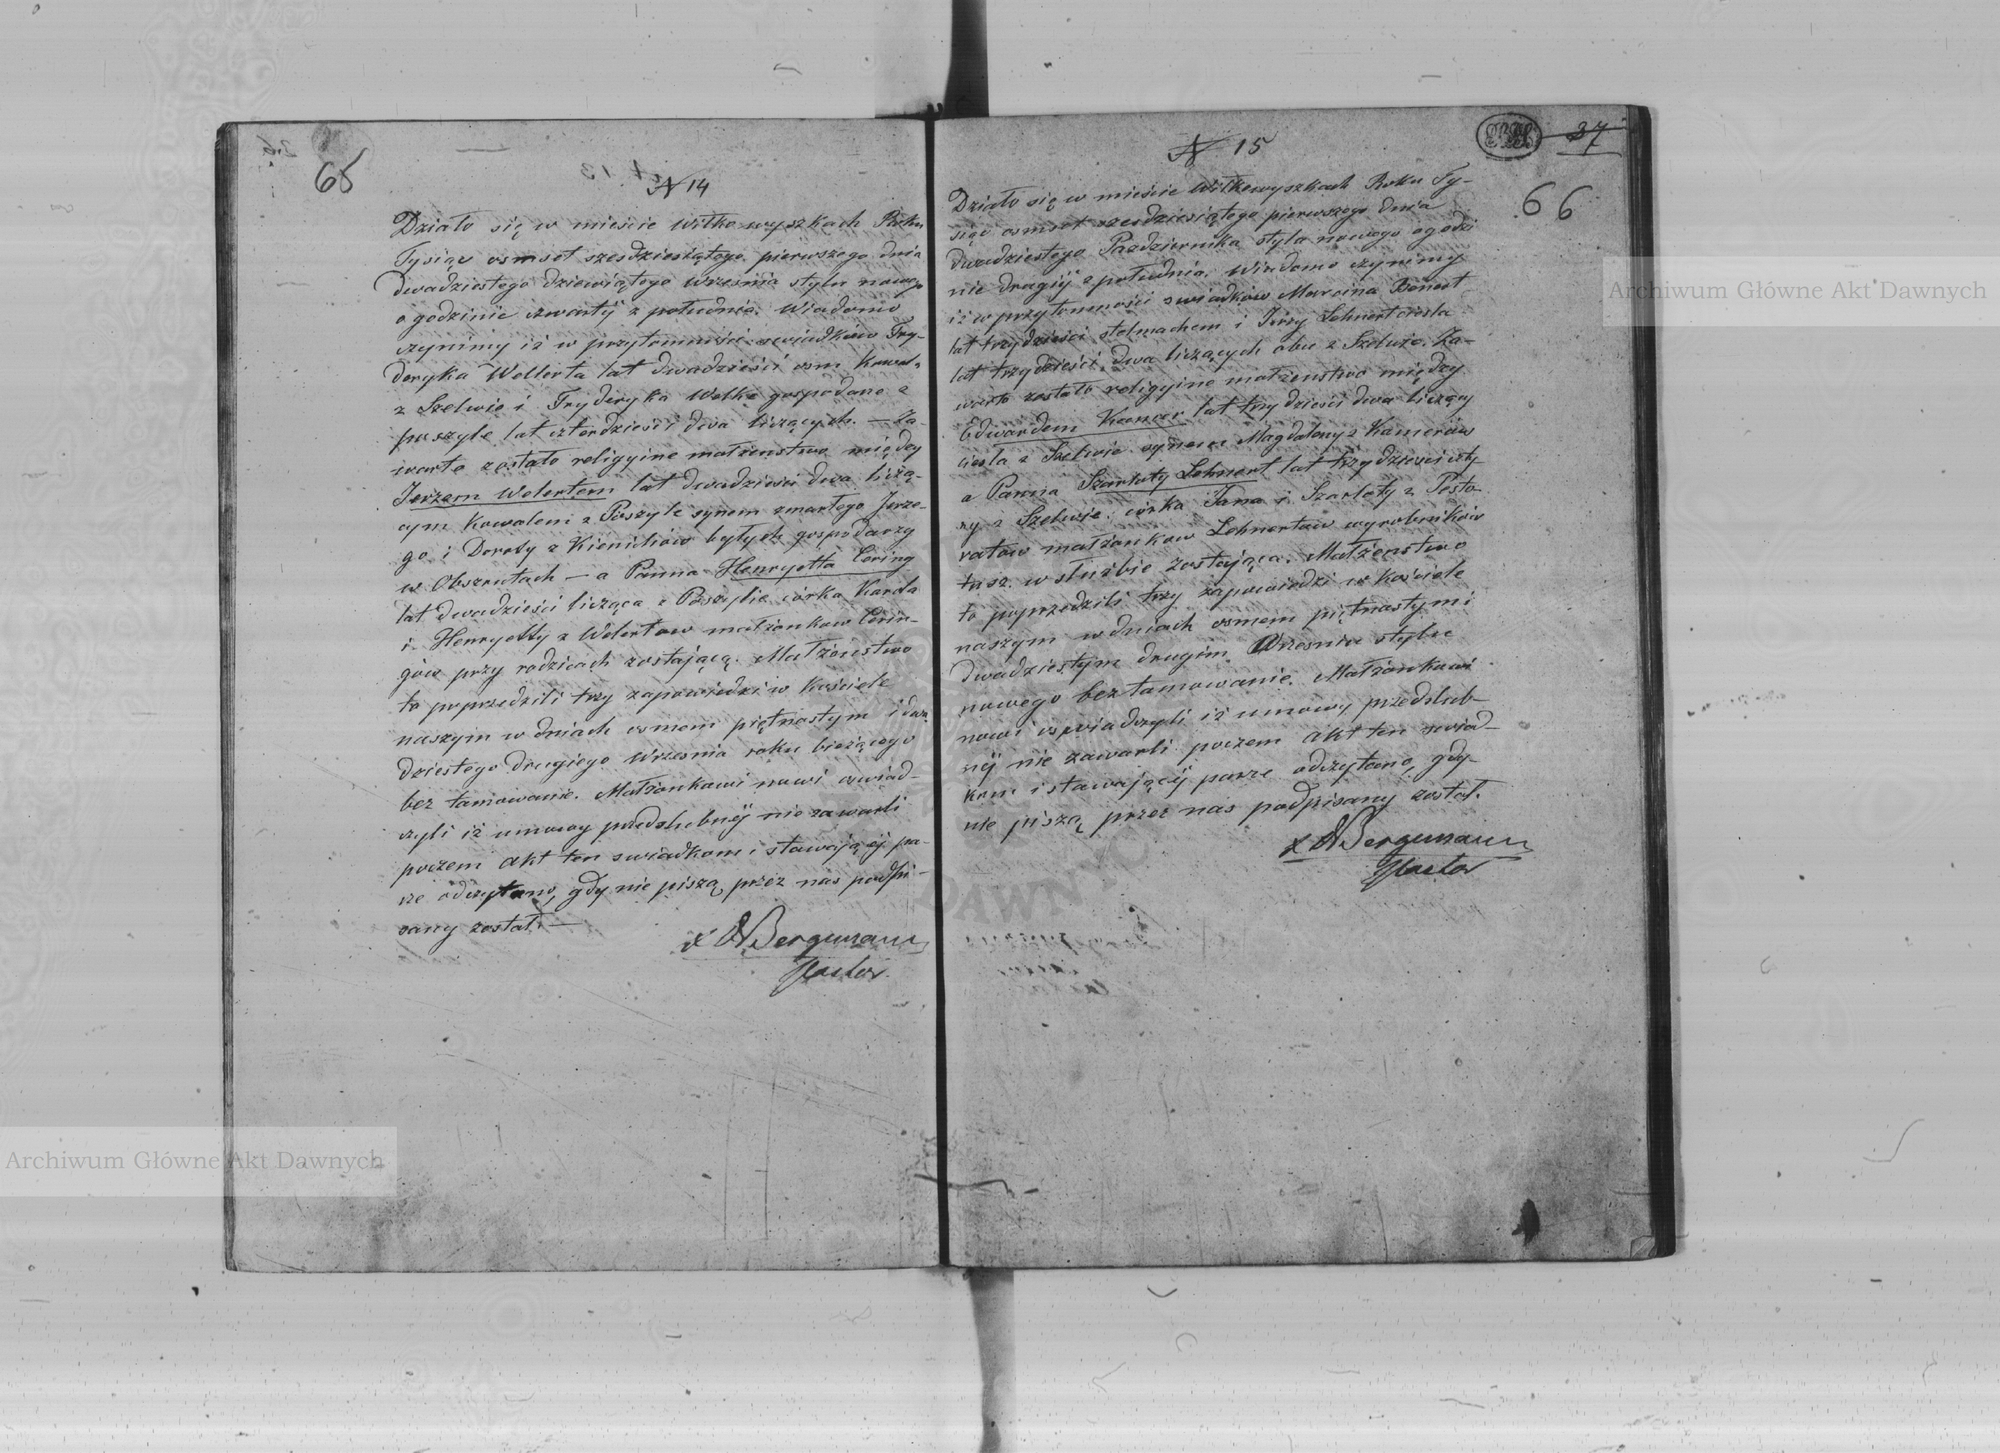 65
N 14
Działo się w mieście Wiłkowyszkach Roku
Tysiąc osmset szesdziesiątego pierwszego dnia
dwadziestego dziewiątego Września stylu nowego
o godzinie czwartéj z południa. Wiadomo
czynimy iż w przytomności swiadków Fry-
deryka Wellerta lat dwadzieści osm Kowal
z Szelwie i Fryderyka Welke gospodarz z
Paszyle lat czterdzieści dwa liczących. — Za-
warte zostało religyine małżenstwo między
Jerzem Welertem lat dwadzieści dwa liczą-
cym Kowalem z Poszyle synem zmarłego Jerze-
go i Doroty z byłych gospodarzy
w Obszrutach — a Panną Henryettą Cering
lat dwadzieści liczącą z Poszylie córka Karola
i Henryetty z Welertow małżonkow Cerin-
gów przy rodzicach zostającą. Małżeństwo
to poprzedzili trzy zapowiedzi w Kościele
naszym w dniach osmem piętnastym i dwa
dziestego drugiego Września roku bieżącego
bez tamowanie. Małżonkowi nowi oswiad-
czyli iż umowy przedslubnéj nie zawarli
poczem akt ten swiadkom i stawającéj pa-
rze odczytano, gdy nie piszą przez nas podpi-
sany został. —
x Bergmann
Pastor.
37
66
N 15
Działo się w mieście Wiłkowyszkach Roku Ty-
siąc osmset szesdziesiątego pierwszego dnia
dwudziestego Pazdziernika stylu nowego o godzi
nie drugiéj z południa. Wiadomo czynimy
iż w przytomności swiadków Marcina Bonert
lat trzydzieści stelmachem i Jerzy Lehnert ciesla
lat trzydzieści dwa liczących obu z Szelwie. Za-
warto zostało religyine małżenstwo między
Edwardem Kamer lat trzydzieści dwa liczący
ciesla z Szelwie synem Magdaleny z Kamerów
a Panna Szarloty Lehnert lat trzydzieści czty-
ry z Szelwie córka Jana i Szarloty z Posto
ratow małżonkow Lehnertow wyrobników
tasz w służbie zostająca. Małżeństwo
to poprzedzili trzy zapowiedzi w Kościele
naszym w dniach osmem piętnastymi
dwadziestym drugim Wrzesnia stylu
nowego bez tamowanie. Małżonkowi
nowi oswiadczyli iż umowy przedslub-
néj nie zawarli poczem akt ten swiad-
kom i stawającéj parze odczytano, gdy-
nie piszą przez nas podpisany został.
x Bergmann
Pastor
Archiwum Główne Akt Dawnych
Archiwum Główne Akt Dawnych